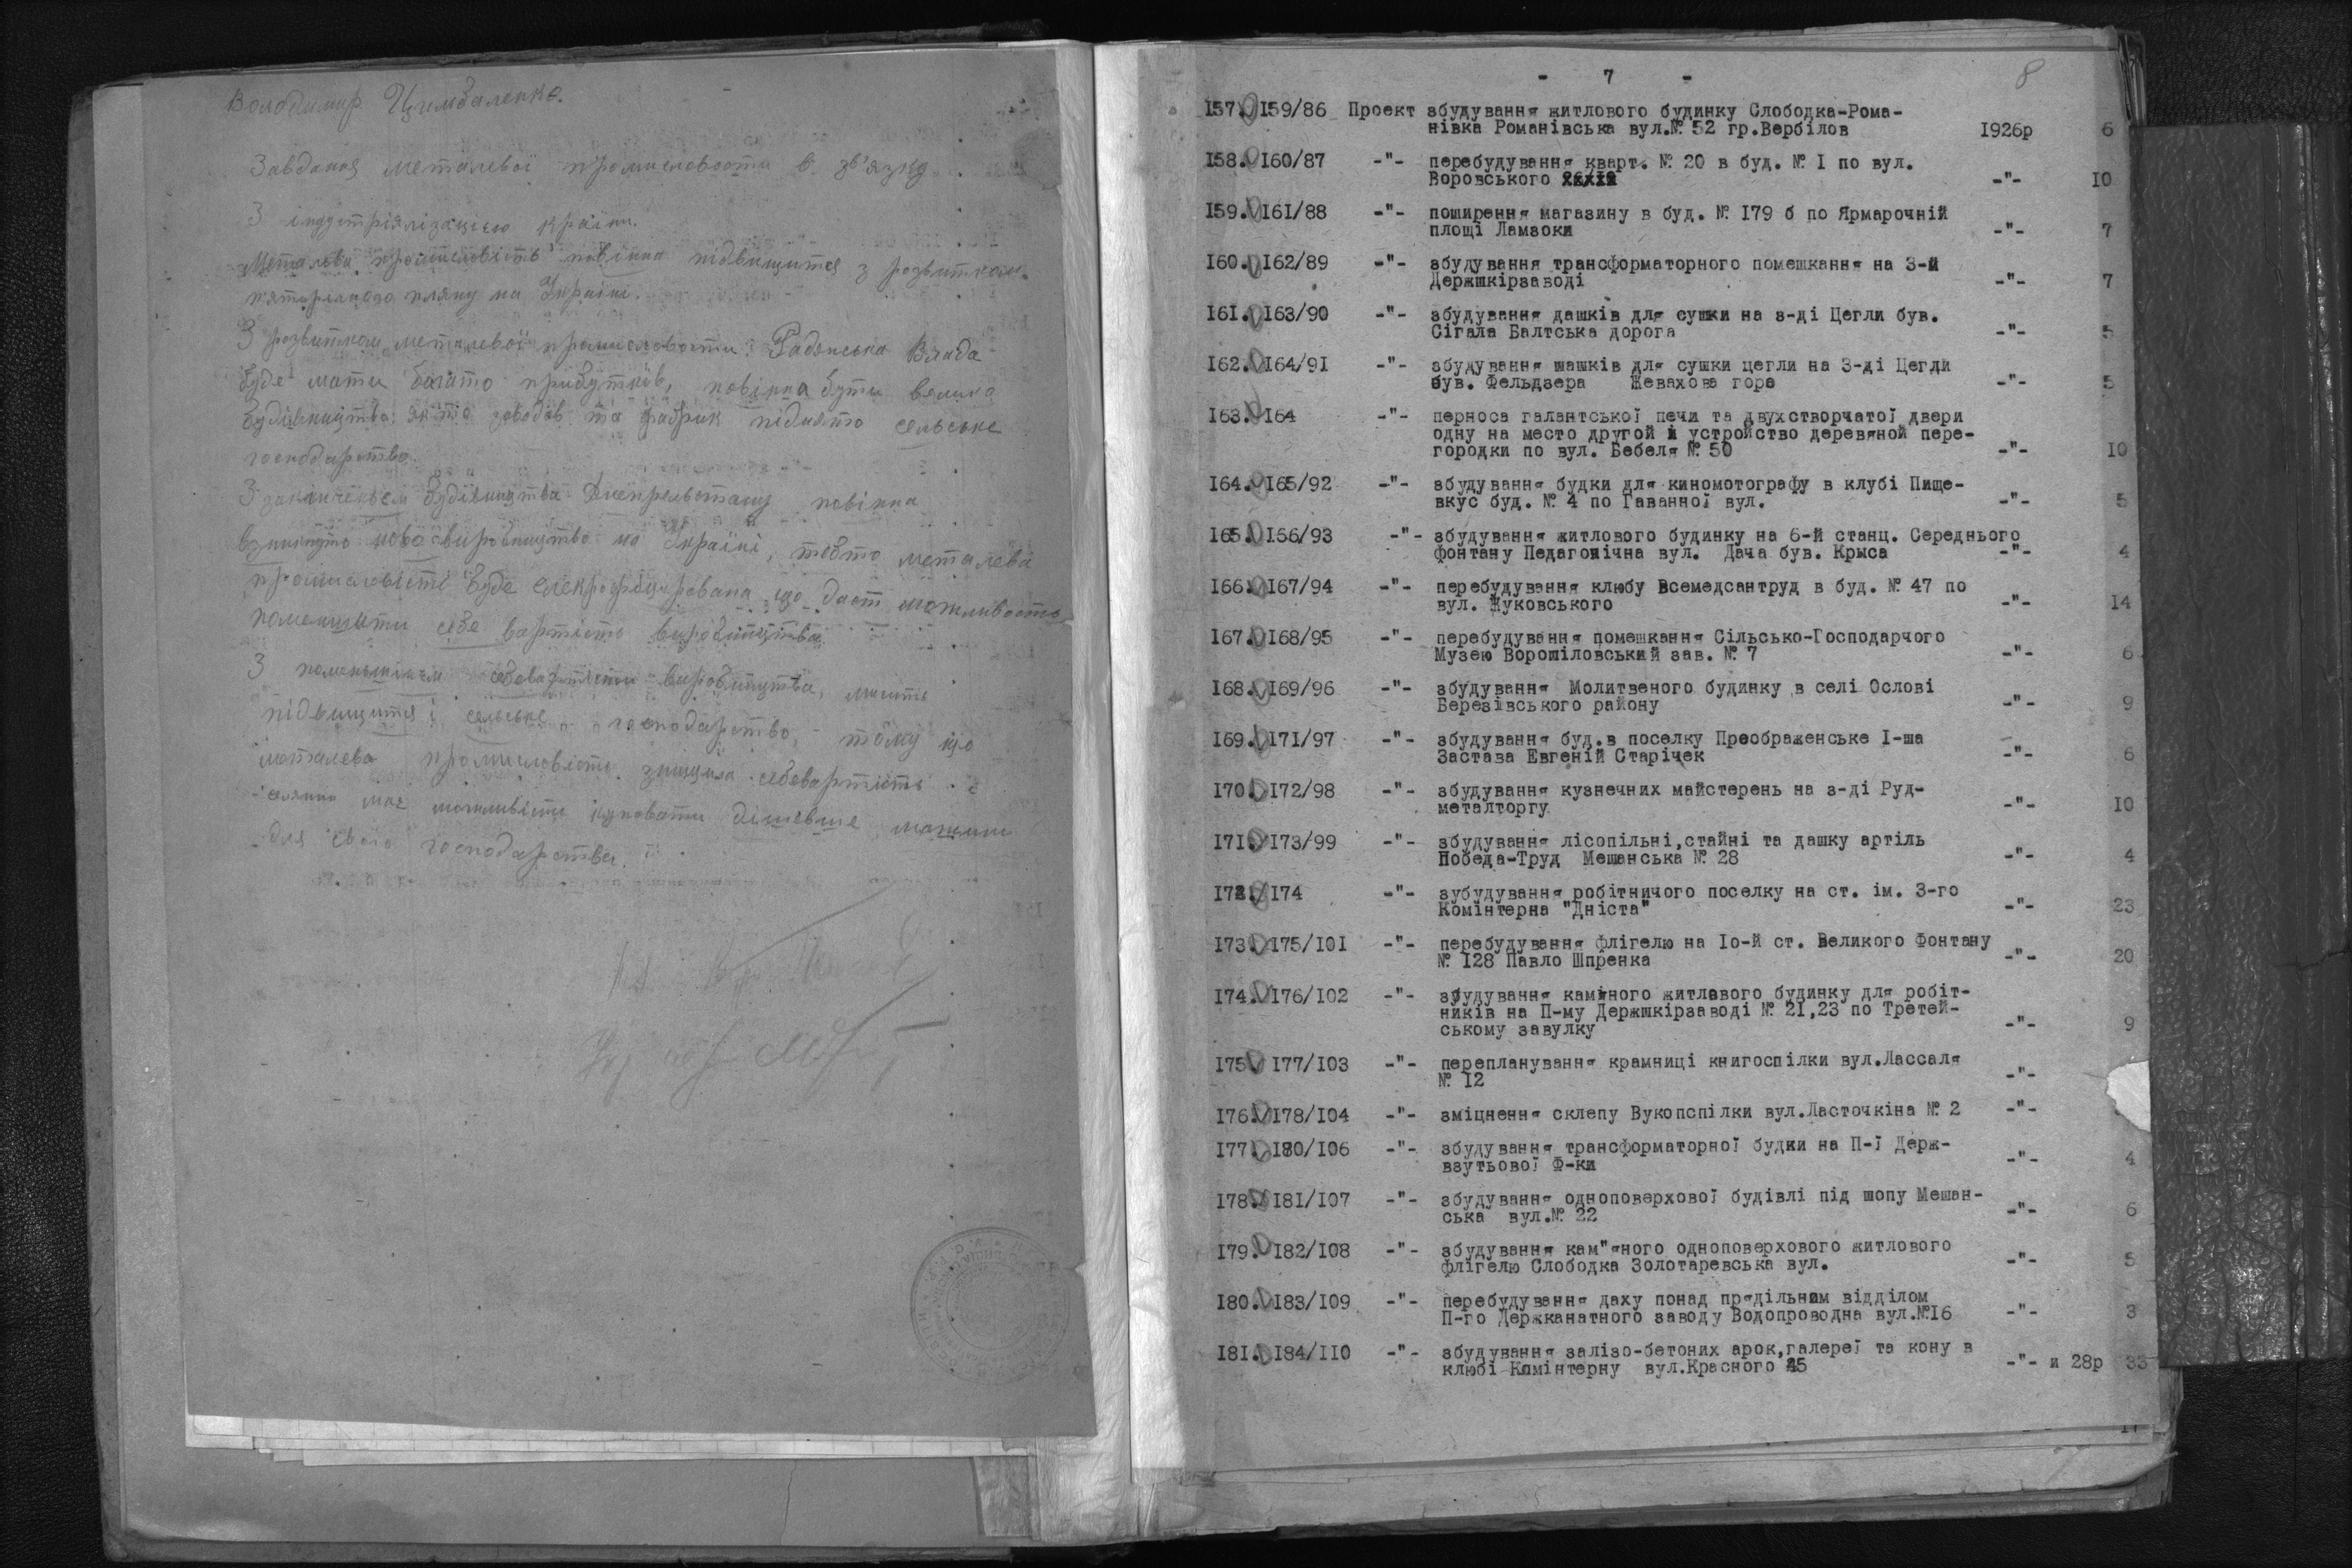 Володимир Цимбаленко.
Завдання металевої промисловости в зв'язку
З індустріялізацією країни.
Металева промисловість повінна підвищитися з розвитком
п'ятирічного пляну на Україні.
З розвитком металевої промисловости Радянська Влада
буде мати багато прибутків, повінна бути велика
будівництва заводів та фабрик підняти сельське
господарство.
З закінченьем будівництва Днепрельстану повінна
нова виробництво на Україні, тобто металева
промисловість буде що даст можливость
поменшити себе вартість виробництва.
З поменьшіньем себевартісти виробництва, мається
підвищитися і сельське господарство, тому що
металева промисловість знищила себевартість
селянин має можливість куповати дішевше машини
для свого господарства.
- 7 -
8
157. 159/86 Проект збудування житлового будинку Слободка-Рома-
нівка Романівська вул.№ 52 гр.Вербілов 1926р 6
158. 160/87 -"- перебудування кварт. № 20 в буд. № 1 по вул.
Воровського -"- 10
159. 161/88 -"- поширення магазину в буд. № 179 б по Ярмарочній
площі Ламзоки -"- 7
160. 162/89 -"- збудування трансформаторного помешкання на 3-й
Держшкірзаводі -"- 7
161. 163/90 -"- збудування дашків для сушки на з-ді Цегли був.
Сігала Балтська дорога -"- 5
162. 164/91 -"- збудування шашків для сушки цегли на З-ді Цегли
був. Фельдзера Жевахова гора -"- 5
163. 164 -"- перноса галантської печи та двухстворчатої двери
одну на место другой и устройство деревяной пере-
городки по вул. Бебеля № 50 -"- 10
164. 165/92 -"- збудування будки для киномотографу в клубі Пище-
вкус буд. № 4 по Гаванної вул. -"- 5
165. 166/93 -"- збудування житлового будинку на 6-й станц. Середнього
фонтану Педагогічна вул. Дача був. Крыса -"- 4
166. 167/94 -"- перебудування клюбу Всемедсантруд в буд. № 47 по
вул. Жуковського -"- 14
167. 168/95 -"- перебудування помешкання Сільсько-Господарчого
Музею Ворошіловський зав. № 7 -"- 6
168. 169/96 -"- збудування Молитвеного будинку в селі Ослові
Березівського району -"- 9
169. 171/97 -"- збудування буд.в поселку Преображенське 1-ша
Застава Евгеній Старічек -"- 6
170. 172/98 -"- збудування кузнечних майстерень на з-ді Руд-
металторгу -"- 10
171. 173/99 -"- збудування лісопільні,стайні та дашку артіль
Победа-Труд Мещанська № 28 -"- 4
172. 174 -"- зубудування робітничого поселку на ст. ім. 3-го
Комінтерна "Дніста" -"- 23
173. 175/101 -"- перебудування флігелю на 1о-й ст. Великого Фонтану
№ 128 Павло Шпренка -"- 20
174. 176/102 -"- збудування камяного житлового будинку для робіт-
ників на П-му Держшкірзаводі № 21,23 по Третей-
ському завулку -"- 9
175. 177/103 -"- перепланування крамниці книгоспілки вул.Лассаля
№ 12 -"-
176. 178/104 -"- зміцнення склепу Вукопспілки вул.Ласточкіна № 2 -"-
177. 180/106 -"- збудування трансформаторної будки на П-ї Держ-
взутьової Ф-ки -"- 4
178. 181/107 -"- збудування одноповерхової будівлі під шопу Мещан-
ська вул.№ 22 -"- 6
179. 182/108 -"- збудування кам"яного одноповерхового житлового
флігелю Слободка Золотаревська вул. -"- 5
180. 183/109 -"- перебудування даху понад прядільним відділом
П-го Держканатного заводу Водопроводна вул.№16 -"- 3
181. 184/110 -"- збудування залізо-бетоних арок,галереї та кону в
клюбі Комінтерну вул.Красного 25 -"- и 28р 33